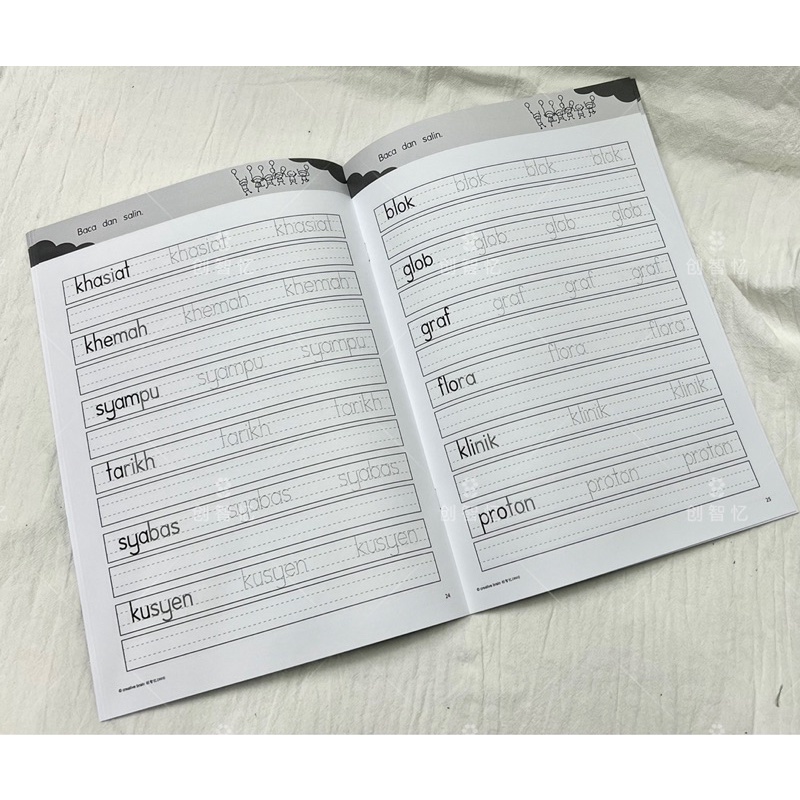 Baca dan salin.
khasiat khasiat khasiat
khemah khemah khemah
syampu syampu syampu
tarikh tarikh tarikh
syabas syabas syabas
kusyen kusyen kusyen
24
Baca dan salin.
blok blok blok blok
glob glob glob glob
graf graf graf graf
flora flora flora
klinik klinik klinik
proton proton proton
25
创智忆
创智忆
创智忆
创智忆
创智忆
创智忆